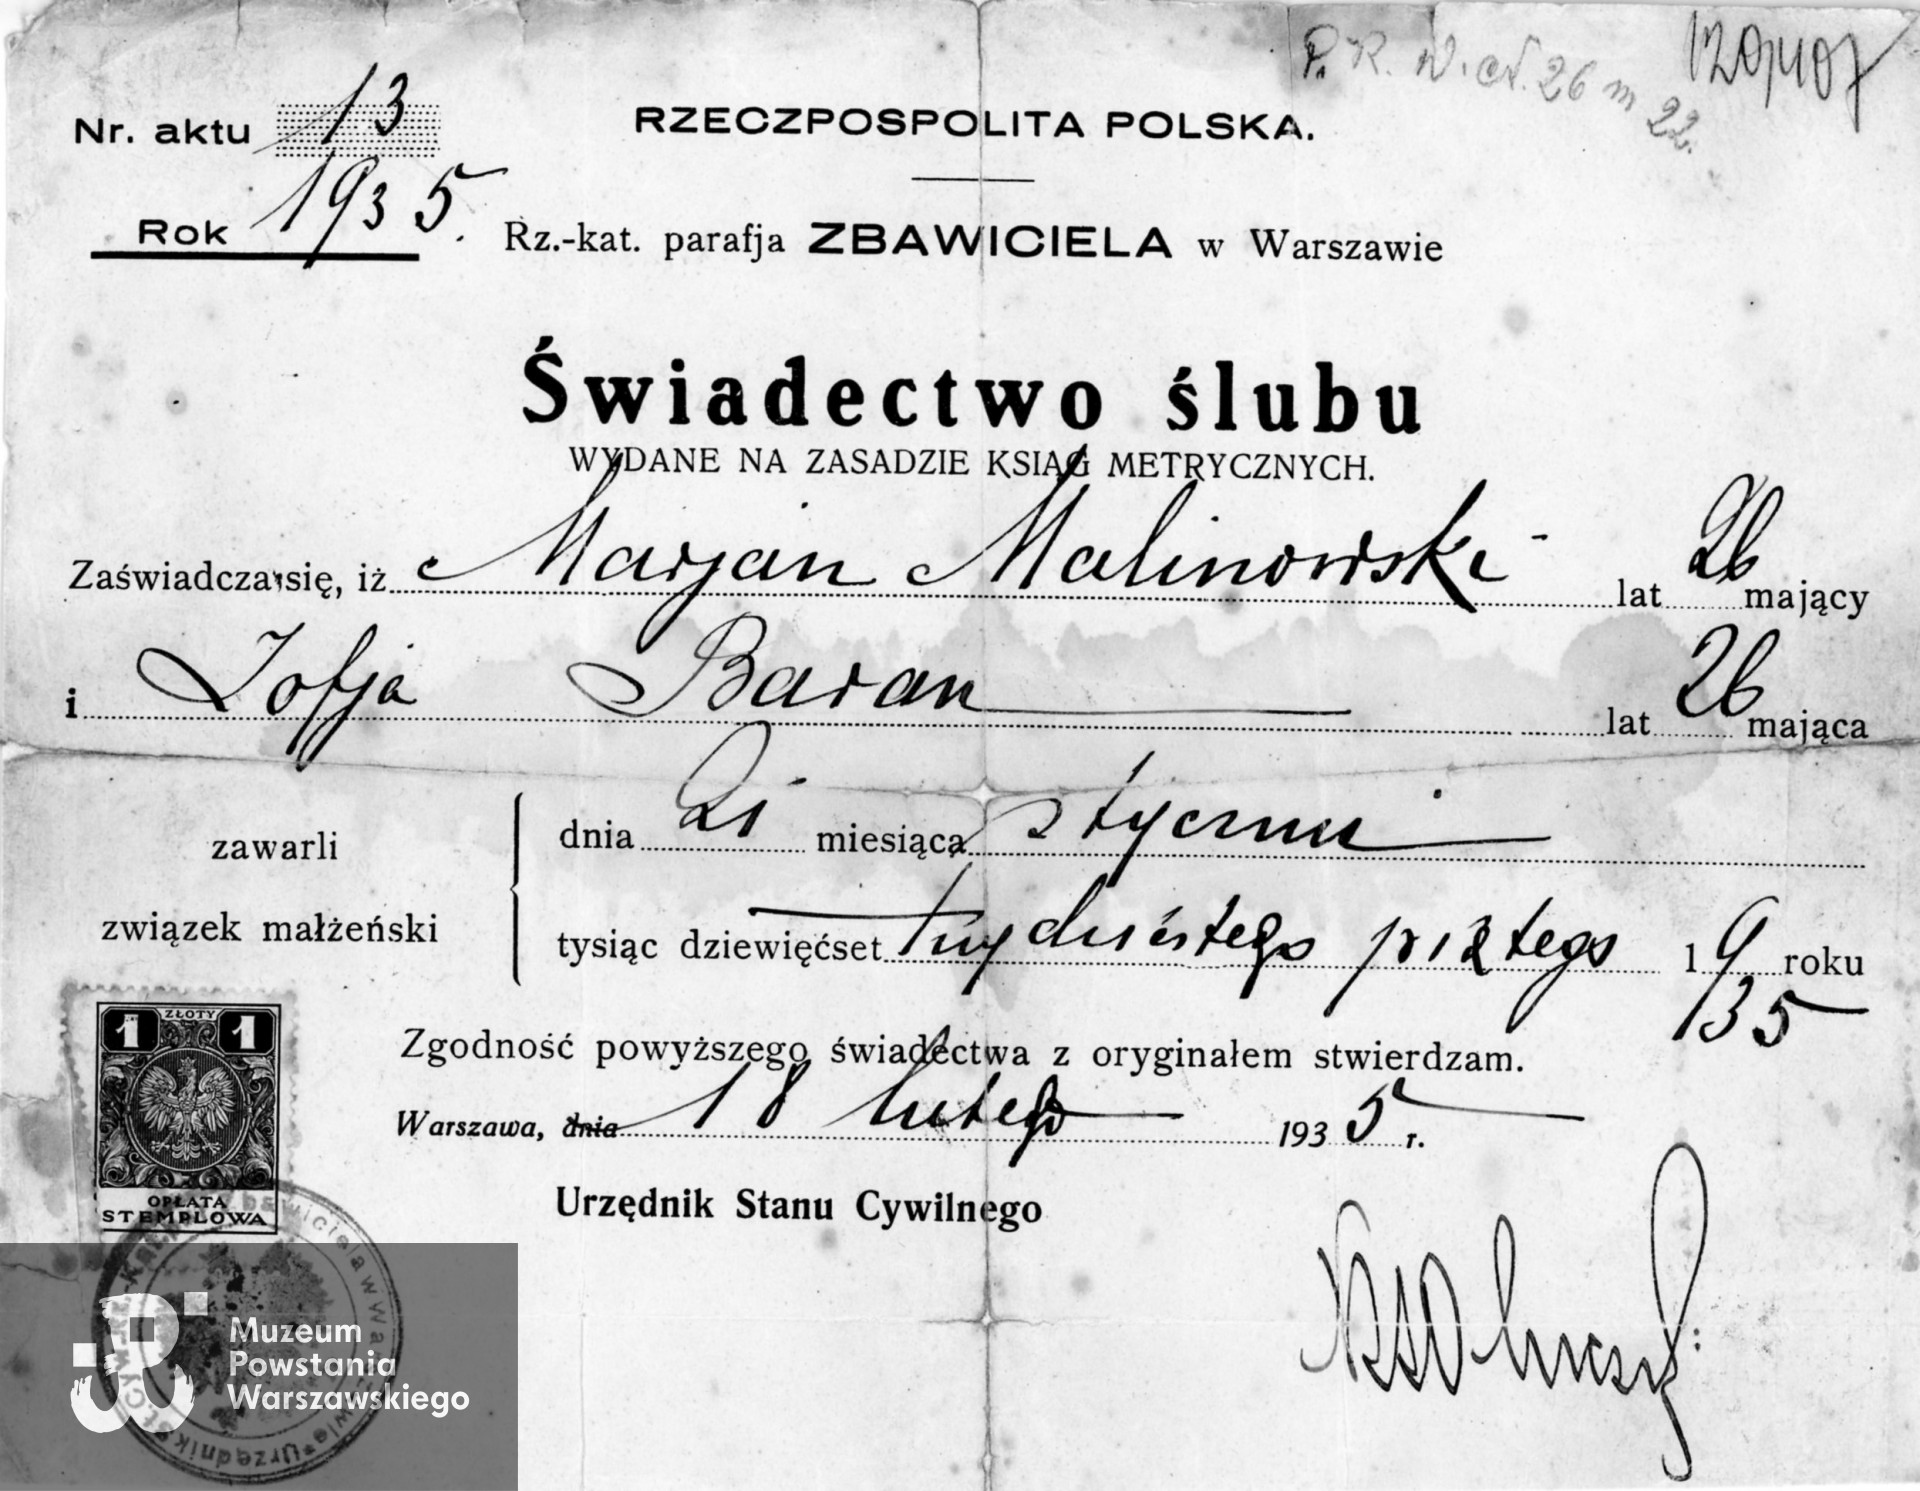 P. K. W. ct. 26 m 22.
120/1107
Nr. aktu 13
RZECZPOSPOLITA POLSKA.
Rok 1935.
Rz.-kat. parafja ZBAWICIELA w Warszawie
Świadectwo ślubu
WYDANE NA ZASADZIE KSIĄG METRYCZNYCH.
Zaświadcza się, iż Marjan Malinowski lat 26 mający
i Zofja Baran lat 26 mająca
zawarli
związek małżeński
dnia 21 miesiąca stycznia
tysiąc dziewięćset trzydziestego piątego 1935 roku
1 ZŁOTY 1
OPŁATA
STEMPLOWA
Zgodność powyższego świadectwa z oryginałem stwierdzam.
Warszawa, dnia 18 lutego 1935 r.
Urzędnik Stanu Cywilnego
Muzeum
Powstania
Warszawskiego